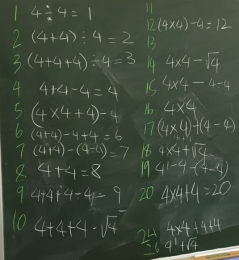 1 4÷4=1
2 (4+4)÷4=2
3 (4+4+4)÷4=3
4 4+4-4=4
5 (4×4+4)÷4
6 (4+4)-4÷4+4=6
7 (4+4)-(4÷4)=7
8 4+4=8
9 4÷4+4+4=9
10 4+4+4-√4
11
12 (4×4)-4=12
13
14 4×4-√4
15 4×4-4÷4
16 4×4
17 (4×4)+(4÷4)
18 4×4+√4
19
20 4×4+4=20
24 4×4+4+4